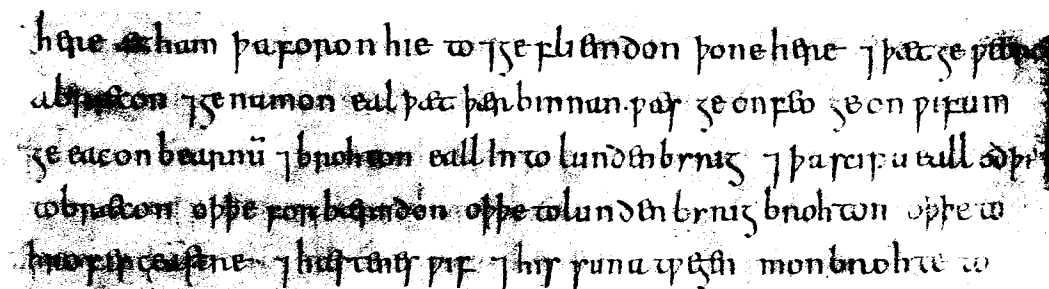 here æt ham þa foron hie to ⁊ ge fliemdon þone here ⁊ þæt ge weorc
abræcon ⁊ ge namon eal þæt þær binnan wæs ge on feo ge on wifum
ge eac on bearnū ⁊ brohton eall in to lundenbyrig ⁊ þa scipu eall oðþe
tobræcon oþþe forbærndon oþþe to lundenbyrig brohton oþþe to
hrofesceastre ⁊ hæstenes wif ⁊ his suna twegen mon brohte to